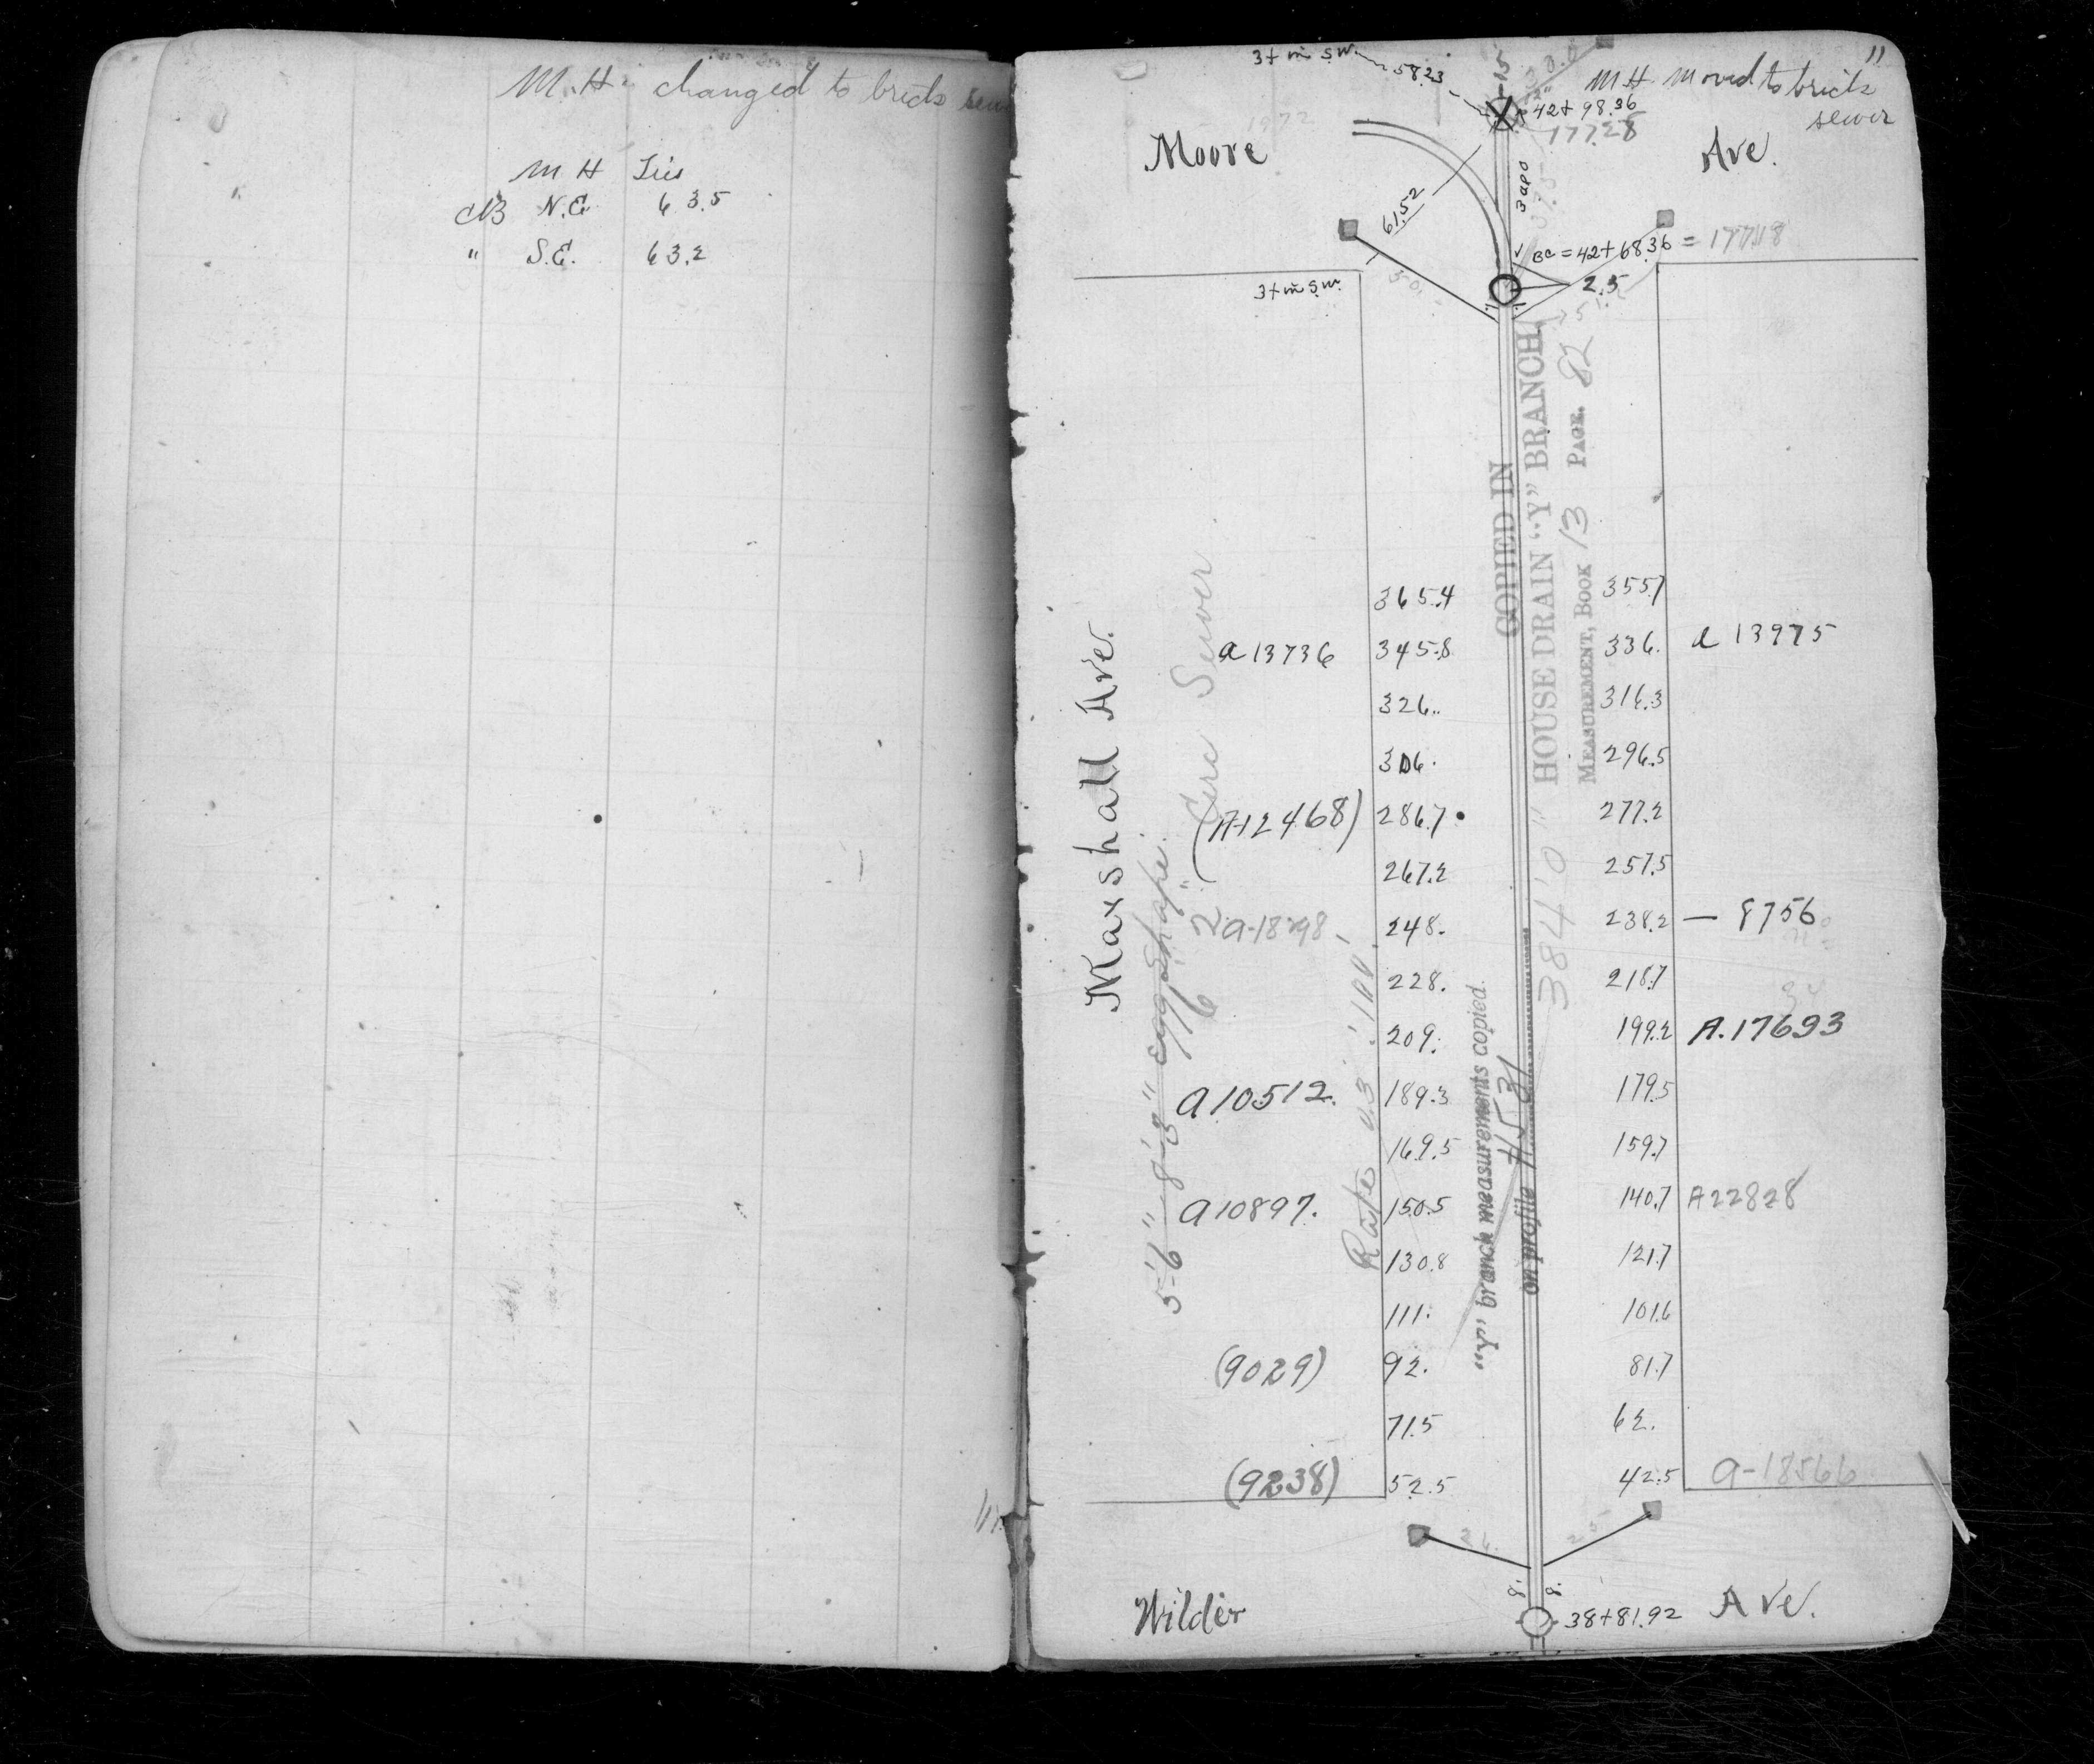 M.H. changed to brick sewer
M H Ties
CB N.E. 63.5
" S.E. 63.2
11
3 ft in S.W.
58.23
15
M H moved to brick
sewer
42+98.36
177.28
Moore
Ave.
61.52
BC = 42+68.36 = 177.18
3 ft in S.W.
2.5
COPIED IN
HOUSE DRAIN "Y" BRANCH
MEASUREMENT, BOOK 13 PAGE. 82
384'0"
Marshall Ave.
5'-6" 8'-3" egg shape.
6' 2" Circ Sewer
365.4 355.7
a 13736 345.8 336. a 13975
326. 316.3
306. 296.5
(A12468) 286.7 277.2
267.2 257.5
a-18798 248. 238.2 — 8756
228. 218.7
209. 199.2 A.17693
a10512. 189.3 179.5
169.5 159.7
a10897. 150.5 140.7 A22828
130.8 121.7
111. 101.6
(9029) 92. 81.7
71.5 62.
(9238) 52.5 42.5 a-18566
Rate
"Y" branch measurements copied.
on profile
26. 25
8. 8.
Wilder
38+81.92
Ave.